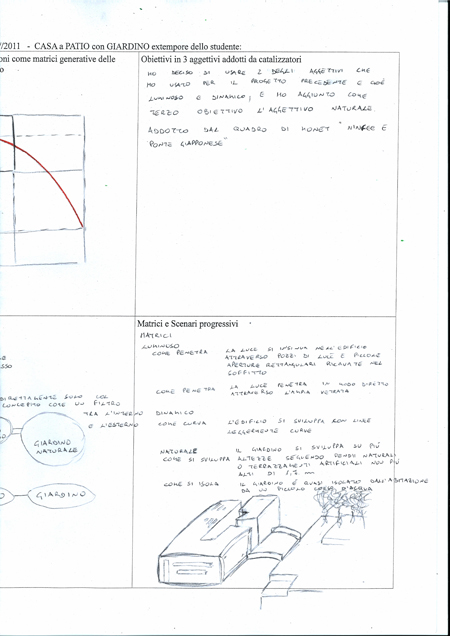 /2011 - CASA a PATIO con GIARDINO extempore dello studente:
oni come matrici generative delle
o
Obiettivi in 3 aggettivi addotti da catalizzatori
HO DECISO DI USARE 2 DEGLI AGGETTIVI CHE
HO USATO PER IL PROGETTO PRECEDENTE E CIOÈ
LUMINOSO E DINAMICO; E HO AGGIUNTO COME
TERZO OBIETTIVO L'AGGETTIVO NATURALE
ADDOTTO DAL QUADRO DI MONET "NINFEE E
PONTE GIAPPONESE"
Matrici e Scenari progressivi
MATRICI
LUMINOSO
COME PENETRA LA LUCE SI INSINUA NELL'EDIFICIO
ATTRAVERSO POZZI DI LUCE E PICCOLE
APERTURE RETTANGOLARI RICAVATE NEL
SOFFITTO
COME PENETRA LA LUCE PENETRA IN MODO DIRETTO
ATTRAVERSO L'AMPIA VETRATA
DINAMICO
COME CURVA L'EDIFICIO SI SVILUPPA CON LINEE
LEGGERMENTE CURVE
NATURALE IL GIARDINO SI SVILUPPA SU PIÙ
COME SI SVILUPPA ALTEZZE SEGUENDO PENDII NATURALI
O TERRAZZAMENTI ARTIFICIALI NON PIÙ
ALTI DI
COME SI ISOLA IL GIARDINO È QUASI ISOLATO DALL'ABITAZIONE
DA UN PICCOLO CORSO D'ACQUA
SSO
DIRETTAMENTE SULLO
CONCEPITO COME UN FILTRO
TRA L'INTERNO
E L'ESTERNO
GIARDINO
NATURALE
GIARDINO